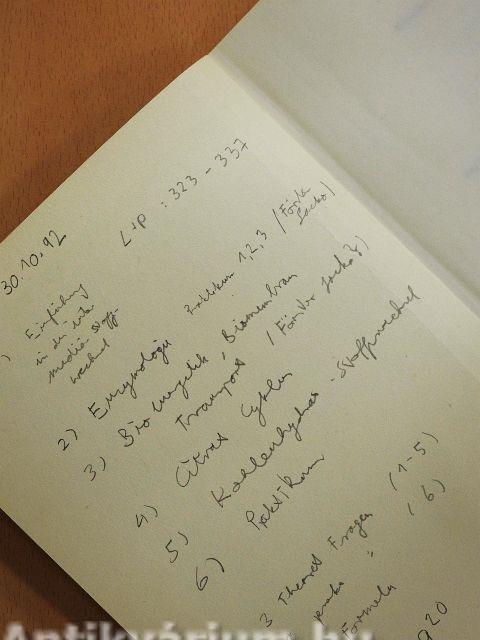 30.10.92
L+P : 323 - 337
1) Einführung
in die inter
mediä Stoff
wechsel
Praktikum 1,2,3 (Förster
Lacko)
2) Enzymologie
3) Bioenergetik, Biomembran
Transport (Förster Lacko?)
4) Citrat Cyklus
5) Kohlenhydrat - Stoffwechsel
6) Praktikum
3 Theoret Fragen (1-5)
" (6)
Formeln
Antikvárium.hu